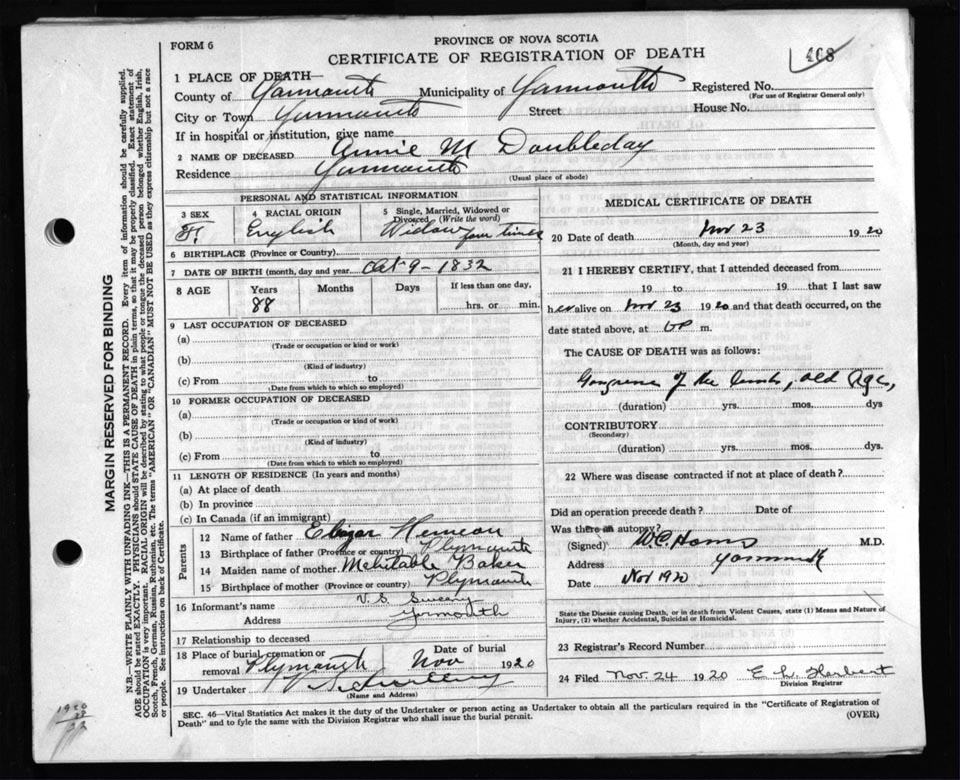 FORM 6
PROVINCE OF NOVA SCOTIA
CERTIFICATE OF REGISTRATION OF DEATH
468
1 PLACE OF DEATH—
County of Yarmouth Municipality of Yarmouth Registered No.
(For use of Registrar General only)
City or Town Yarmouth Street House No.
If in hospital or institution, give name
2 NAME OF DECEASED Annie M Doubleday
Residence Yarmouth
(Usual place of abode)
PERSONAL AND STATISTICAL INFORMATION
3 SEX
F.
4 RACIAL ORIGIN
English
5 Single, Married, Widowed or
Divorced (Write the word)
Widow four times
6 BIRTHPLACE (Province or Country)
7 DATE OF BIRTH (month, day and year) Oct 9 - 1832
8 AGE Years Months Days If less than one day,
88 hrs. or min.
9 LAST OCCUPATION OF DECEASED
(a)
(Trade or occupation or kind or work)
(b)
(Kind of industry)
(c) From to
(Date from which to which so employed)
10 FORMER OCCUPATION OF DECEASED
(a)
(Trade or occupation or kind of work)
(b)
(Kind of industry)
(c) From to
(Date from which to which so employed)
11 LENGTH OF RESIDENCE (In years and months)
(a) At place of death
(b) In province
(c) In Canada (if an immigrant)
Parents
12 Name of father
13 Birthplace of father (Province or country) Plymouth
14 Maiden name of mother Mehitable Baker
15 Birthplace of mother (Province or country) Plymouth
16 Informant's name V. S. Sweeny
Address Yarmouth
17 Relationship to deceased
18 Place of burial, cremation or
removal Plymouth
Date of burial
Nov 1920
19 Undertaker
(Name and Address)
MEDICAL CERTIFICATE OF DEATH
20 Date of death Nov 23 1920
(Month, day and year)
21 I HEREBY CERTIFY, that I attended deceased from
19 to 19 that I last saw
her alive on Nov 23 1920 and that death occurred, on the
date stated above, at 6 P m.
The CAUSE OF DEATH was as follows:
Gangrene of the limbs, old Age,
(duration) yrs. mos. dys
CONTRIBUTORY
(Secondary)
(duration) yrs. mos. dys.
22 Where was disease contracted if not at place of death?
Did an operation precede death? Date of
Was there an autopsy?
(Signed) M.D.
Address Yarmouth
Date Nov 1920
State the Disease causing Death, or in death from Violent Causes, state (1) Means and Nature of
Injury, (2) whether Accidental, Suicidal or Homicidal.
23 Registrar's Record Number
24 Filed Nov. 24 1920 E. L. Herbert
Division Registrar
SEC. 46—Vital Statistics Act makes it the duty of the Undertaker or person acting as Undertaker to obtain all the particulars required in the "Certificate of Registration of
Death" and to fyle the same with the Division Registrar who shall issue the burial permit.
(OVER)
MARGIN RESERVED FOR BINDING
N.B.—WRITE PLAINLY WITH UNFADING INK—THIS IS A PERMANENT RECORD. Every item of information should be carefully supplied.
AGE should be stated EXACTLY. PHYSICIANS should STATE CAUSE OF DEATH in plain terms, so that it may be properly classified. Exact statement of
OCCUPATION is very important. RACIAL ORIGIN will be described by stating to what people or tongue the deceased person belonged whether English, Irish,
Scotch, French, German, Russian, Ruthenian, etc. The terms "AMERICAN" OR "CANADIAN" MUST NOT BE USED as they express citizenship but not a race
or people. See instructions on back of Certificate.
1920
88
32